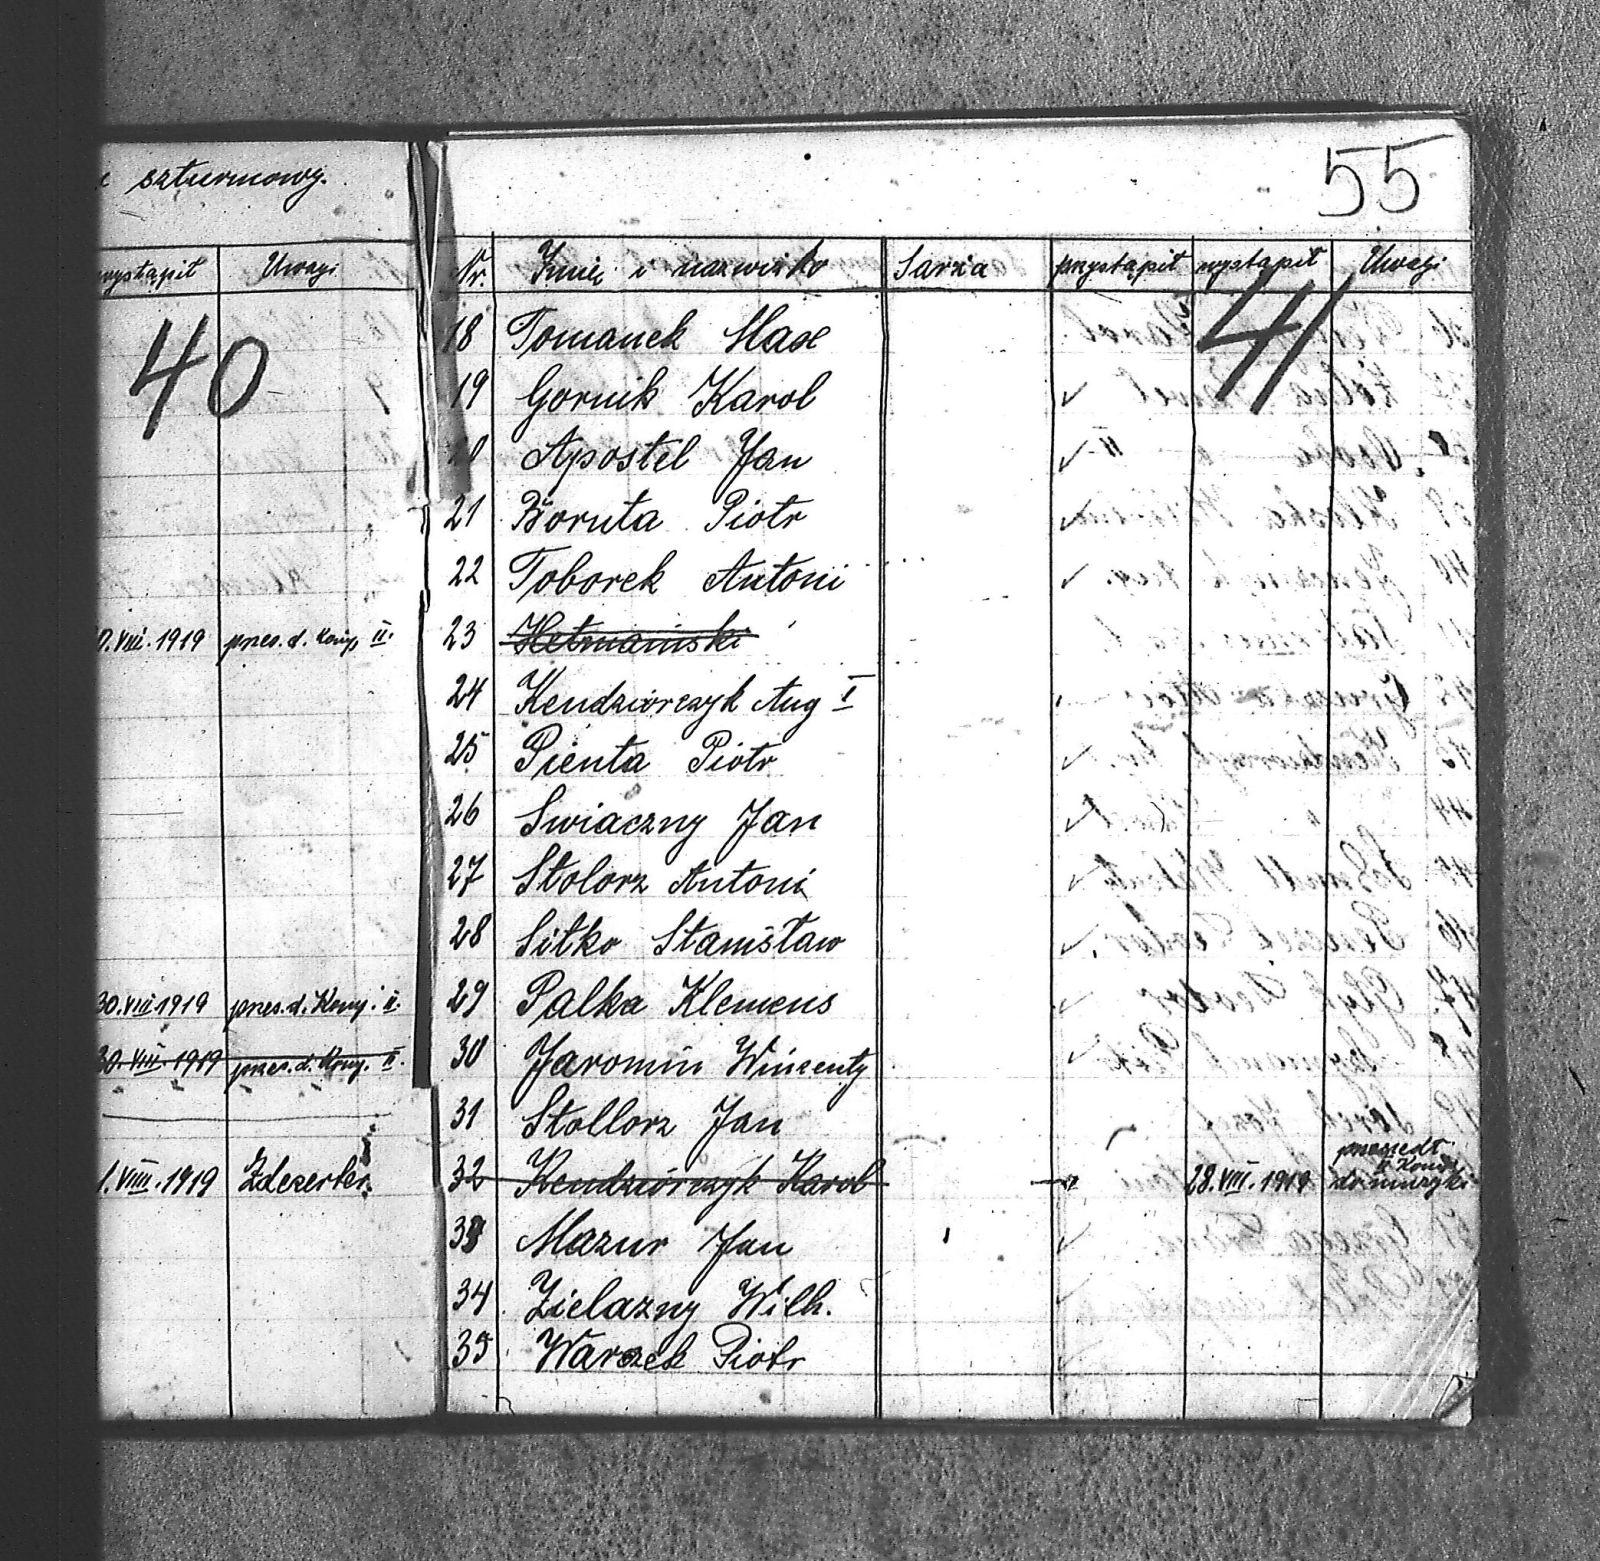 szturmowy.
wystąpił Uwagi
40
VIII. 1919 przes. d. Komp. II.
30.VIII.1919 przes. d. Komp. II.
30.VIII.1919 przes. d. Komp. II.
1.VIII.1919 Zdezerter.
55
Nr. Imię i nazwisko Sarża przystąpił wystąpił Uwagi
41
18 Tomanek Max
19 Gornik Karol
20 Apostel Jan
21 Boruta Piotr
22 Toborek Antoni
23 Hetmański
24 Kendziorczyk Aug I
25 Pienta Piotr
26 Swiaczny Jan
27 Stolorz Antoni
28 Sitko Stanisław
29 Palka Klemens
30 Jaromin Winzenty
31 Stollorz Jan
32 Kendziorczyk Karol 28.VIII.1919 do muzyki
33 Mazur Jan
34 Zielazny Wilh.
35 Warzek Piotr